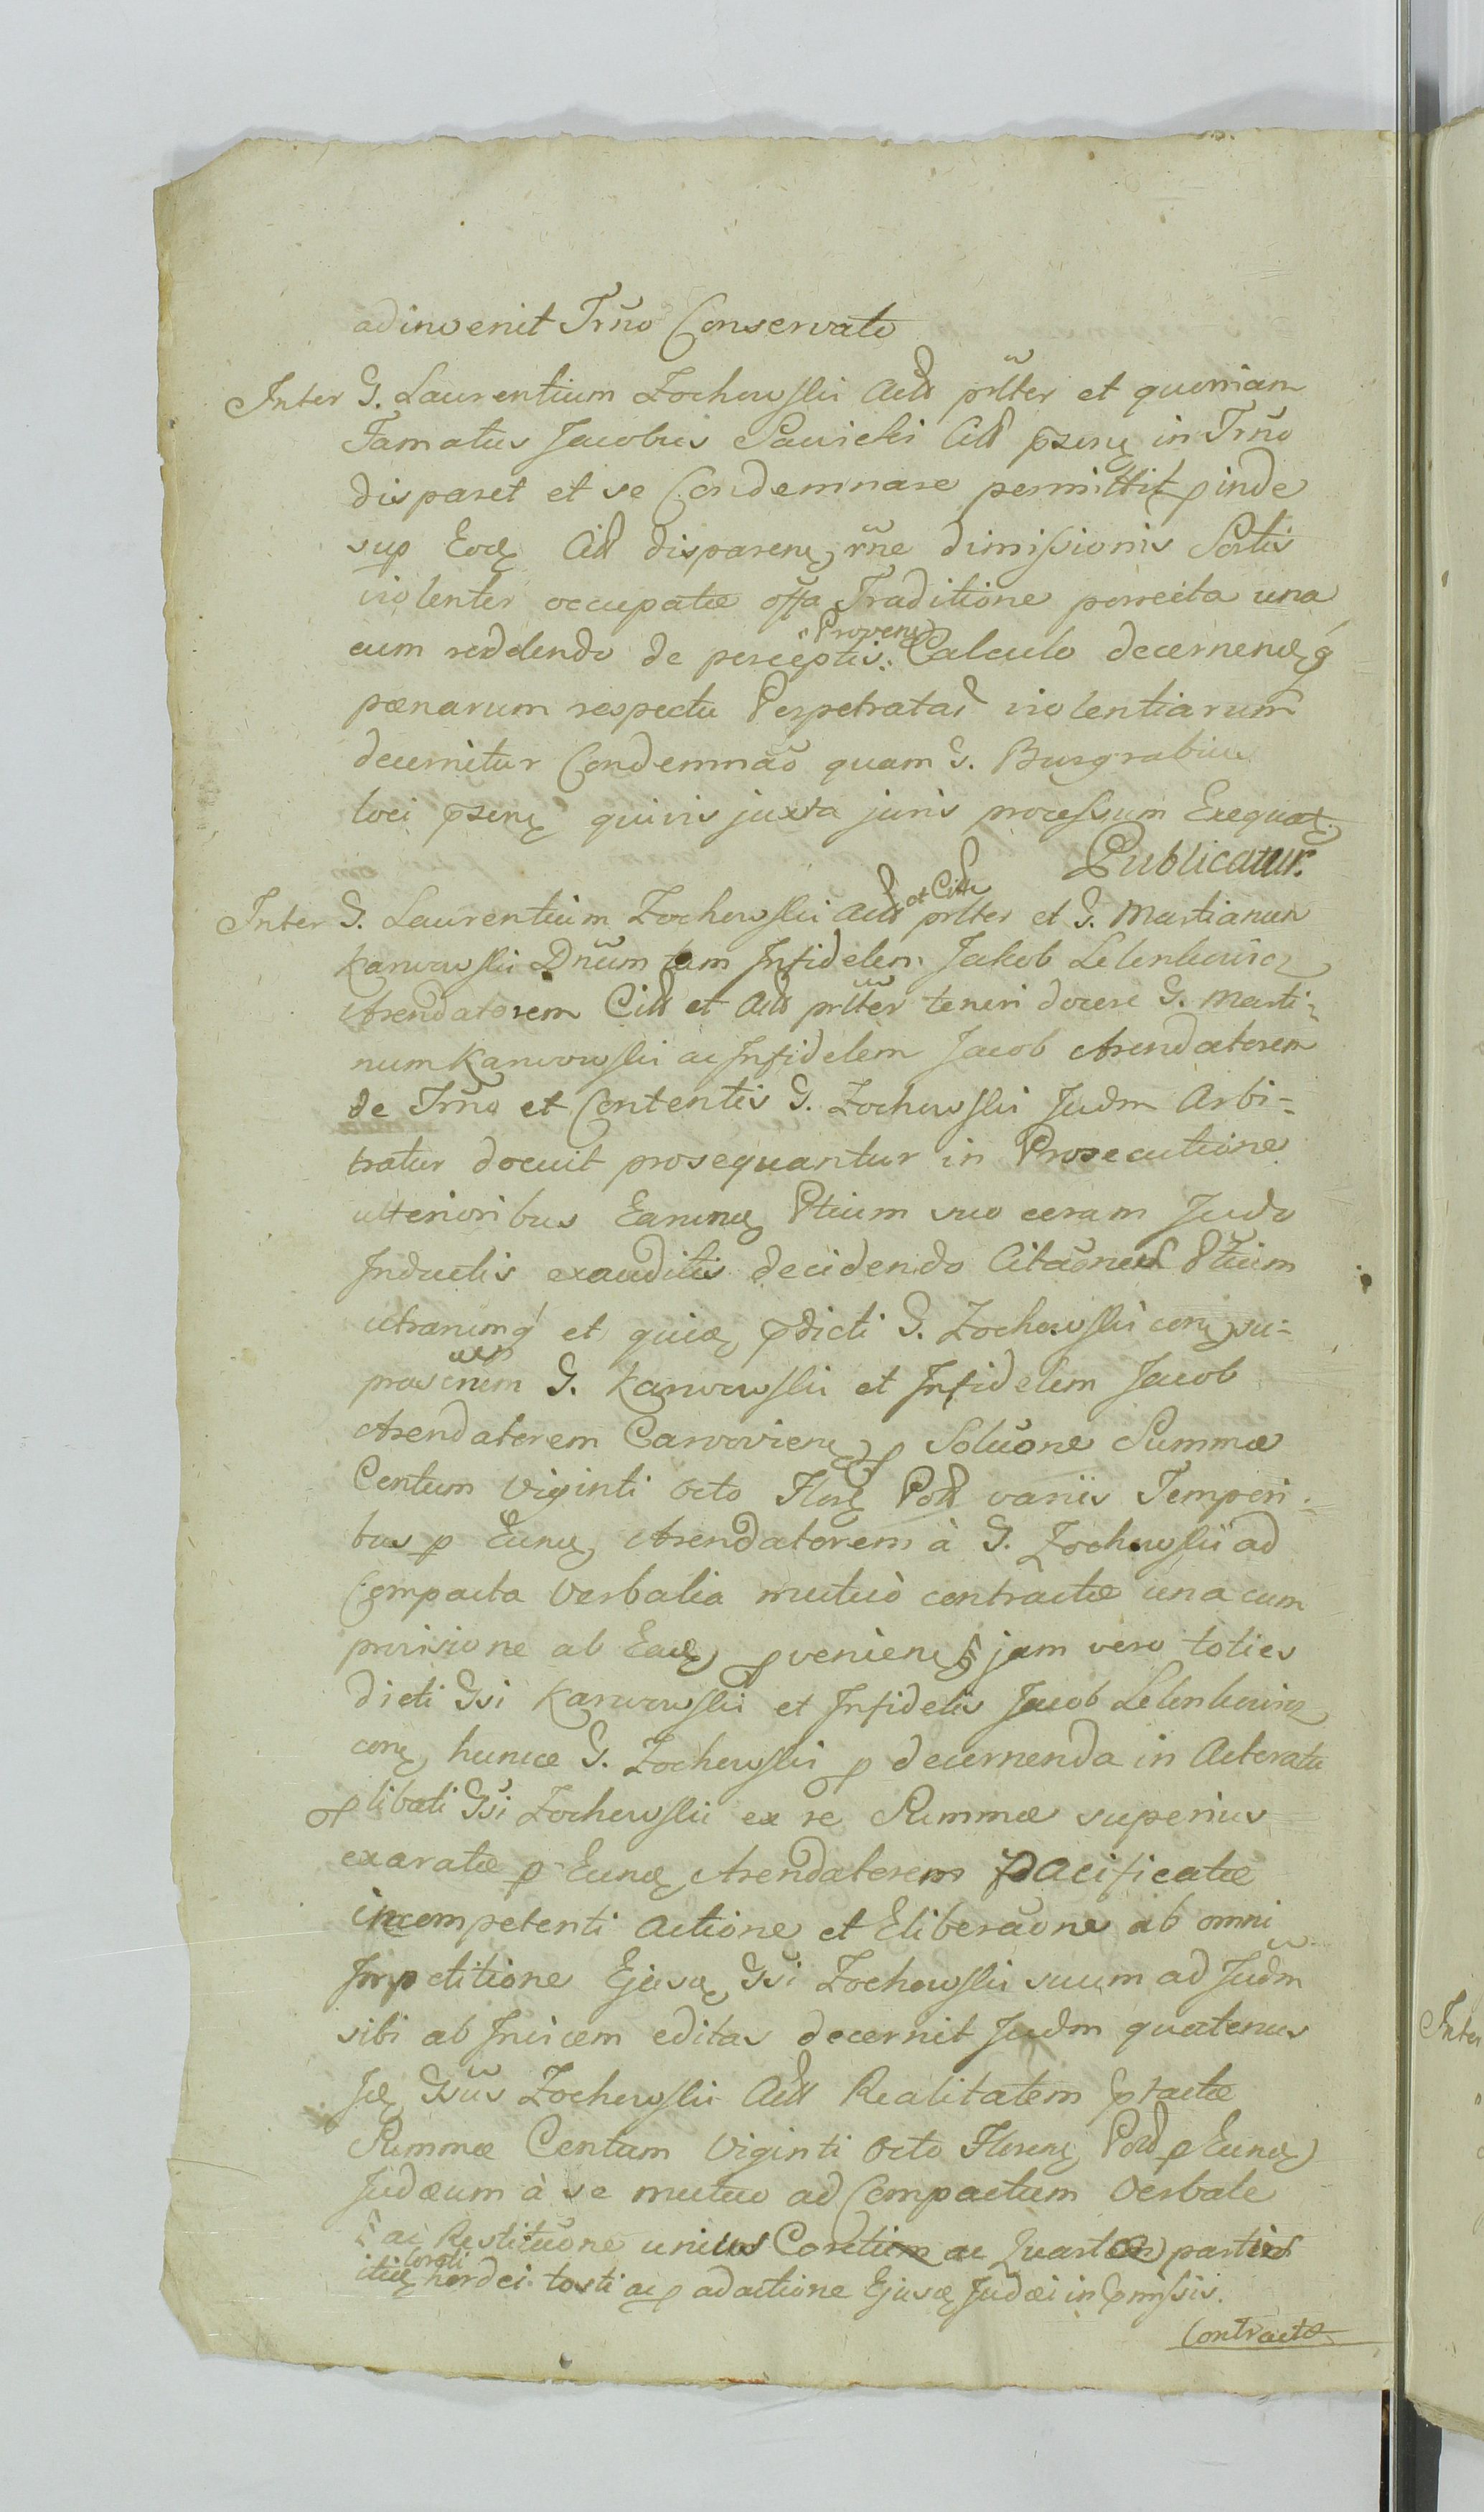 adinvenit Trño Conservato
Inter G. Laurentium Zochowski Act prlter et quoniam
Famatus Jacobus Sawicki Citt pzens in Trño
disparet et se Condemnare permittit pinde
sup Eod Citt disparens, rñe dimissionis Sortis
violenter occupatæ Traditione porrecta una
cum reddendo de perceptis Proven Calculo decernend
pœnarum respectu Perpetratar violentiarum
decernitur Condemnaõ quam G. Burgrabius
loci pzens quivis juxta juris processum Exequat
Publicatur.
Inter G. Laurentium Zochowski Act et Citt prlter et G. Martianum
Karwowski Dnum tum Infidelem Jakob Lelenkowicz
Arendatorem Citt et Act prlter teneri docere G. Marti=
num Karwowski ac Infidelem Jacob Arendatorem
de Trño et Contentis G. Zochowski Judm Arbi=
tratur docuit prosequantur in Prosecutione
ulterioribus Earund Ptium suo coram Judo
Inductis exauditis decidendo Citaõnes Ptium
utrarumq et quid pdicti G. Zochowski con su=
G. Karwowski et Infidelem Jacob
Arendatorem Carwoviens p Soluõne Summæ
Centum Viginti octo Flor Pol variis Tempori=
bus p Eund Arendatorem à G. Zochowski ad
Compacta Verbalia mutuò contractæ una cum
provisione ab Ead pveniens jam vero toties
dicti Gsi Karwowski et Infidelis Jacob Lelenkowicz
con hunce G. Zochowski p decernenda in Actoratu
plibati Gsi Zochowski ex re Summæ superius
exaratæ p Eund Arendatorem pacificatæ
incompetenti actione et Eliberaõne ab omni
Impetitione Ejusd Gsi Zochowski suum ad Judm
sibi ab Invicem editas decernit Judm quatenus
Id Gsus Zochowski Act Realitatem ptactæ
Summæ Centum Viginti Octo Floren Pol p Eund
Judæum à se mutuo ad Compactum Verbale
ac Restituõne unius Coretim ac Quartæ partis
itid hordei tosti ac p adactione Ejusd Judæi in pmissis.
Contractæ